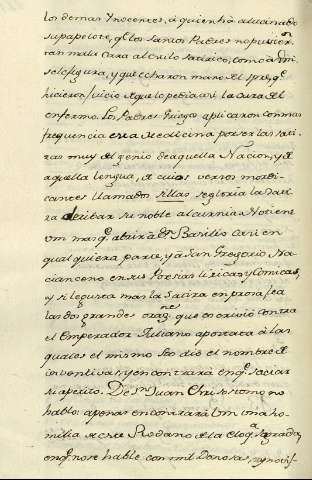 los demas Ynocentes, á quien há alucinado
su papelote, qe. los Santos Padres no pusieron
tan mala cara al estilo satirico, como à Vm.
se le figura, y que echaron mano del spre. qe.
hicieron juicio à que lo pedia asi la cura del
enfermo. Los Padres Griegos aplicaron con mas
frequencia esta Medicina por ser las sati-
ras muy del genio de aquella Nacion, y de
aquella lengua, de cuios versos mordi-
cantes llamados sillas se gloría la Sati-
ra deribar su noble alcurnia. No tiene
Vm mas qe. abrir à Sn. Basilio casi en
qualquiera parte, y à San Gregorio Na-
cianceno en sus Poesias liricas y Comicas,
y si le gusta mas la Satira en prosa, lea
las dos grandes oraznes. que escrivió contra
el Emperador Juliano apostata à las
quales el mismo Sto. dió el nombre de
invectivas, y encontrará en qe. saciar
su apetito. De Sn. Juan Chrisostomo no
hablo: apenas encontrará Vm una ho-
milia de este Rodano de la Eloqa. sagrada,
en qe. no se hable con mil Donosas,